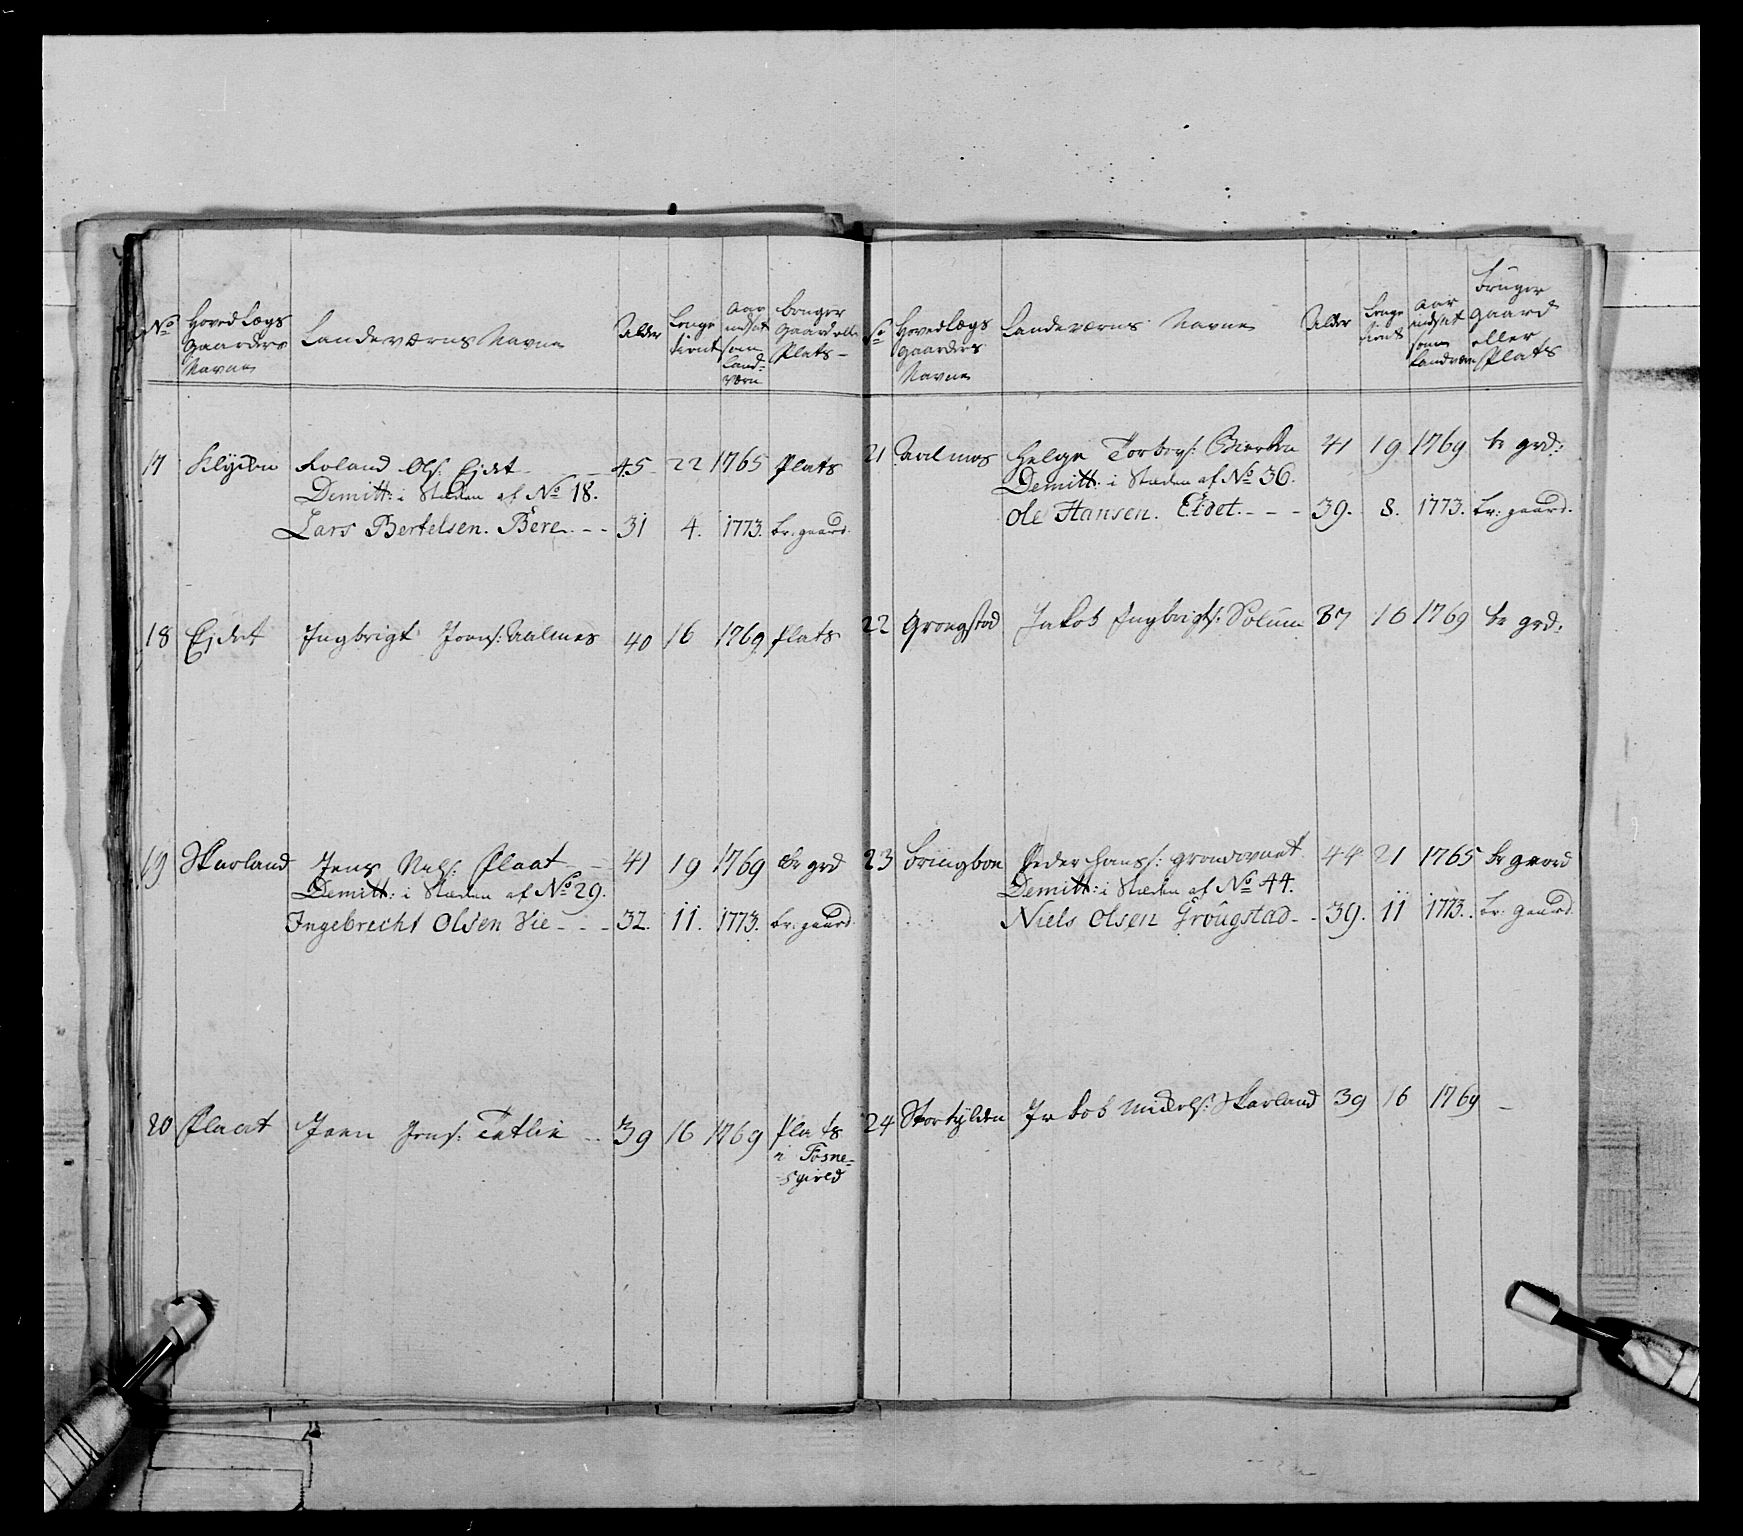 No Hoved Lægs Gaarders Navne Landeværns Navne Alder Lenge tient Aar indsat som Land-værn bruger Gaard eller Plats
17 Klyken Roland Ols: Ejdet 45 22 1765 Plats
Demitt: i Stæden af No 18.
Lars Bertelsen. Bere 31 4. 1773. br: gaard.
18 Ejdet Ingbrigt Jons: Aalmes 40 16 1769 plats
19 Skarland Jens Nels: Plaat 41 19 1769 br grd
Demitt: i Stæden af No 29.
Ingebrecht Olsen Vie 32. 11. 1773. br: gaard
20 Plaat Joen Jons: Tetlie 39 16 1769 plats
i Fosne-
sgield
No Hoved Lægs Gaarders Navne Landeværns Navne Alder Lenge tient Aar indsat som Landværn bruger Gaard eller Plats
21 Aalmos Helge Torbers: 41 19 1769 br grd:
Demitt: i Stæden af No 36.
Ole Hansen. Eidet 39. 8. 1773. br: gaard.
22 Grongstad Jakob Ingbrigts: Solum 37 16 1769 br grd:
23 Peder Hans: 44 21 1765 br gaard
Demitt: i Stæden af No 44.
Niels Olsen Grougstad 39. 11 1773. br: gaard.
24 Jakob Skarland 39 16 1769 -